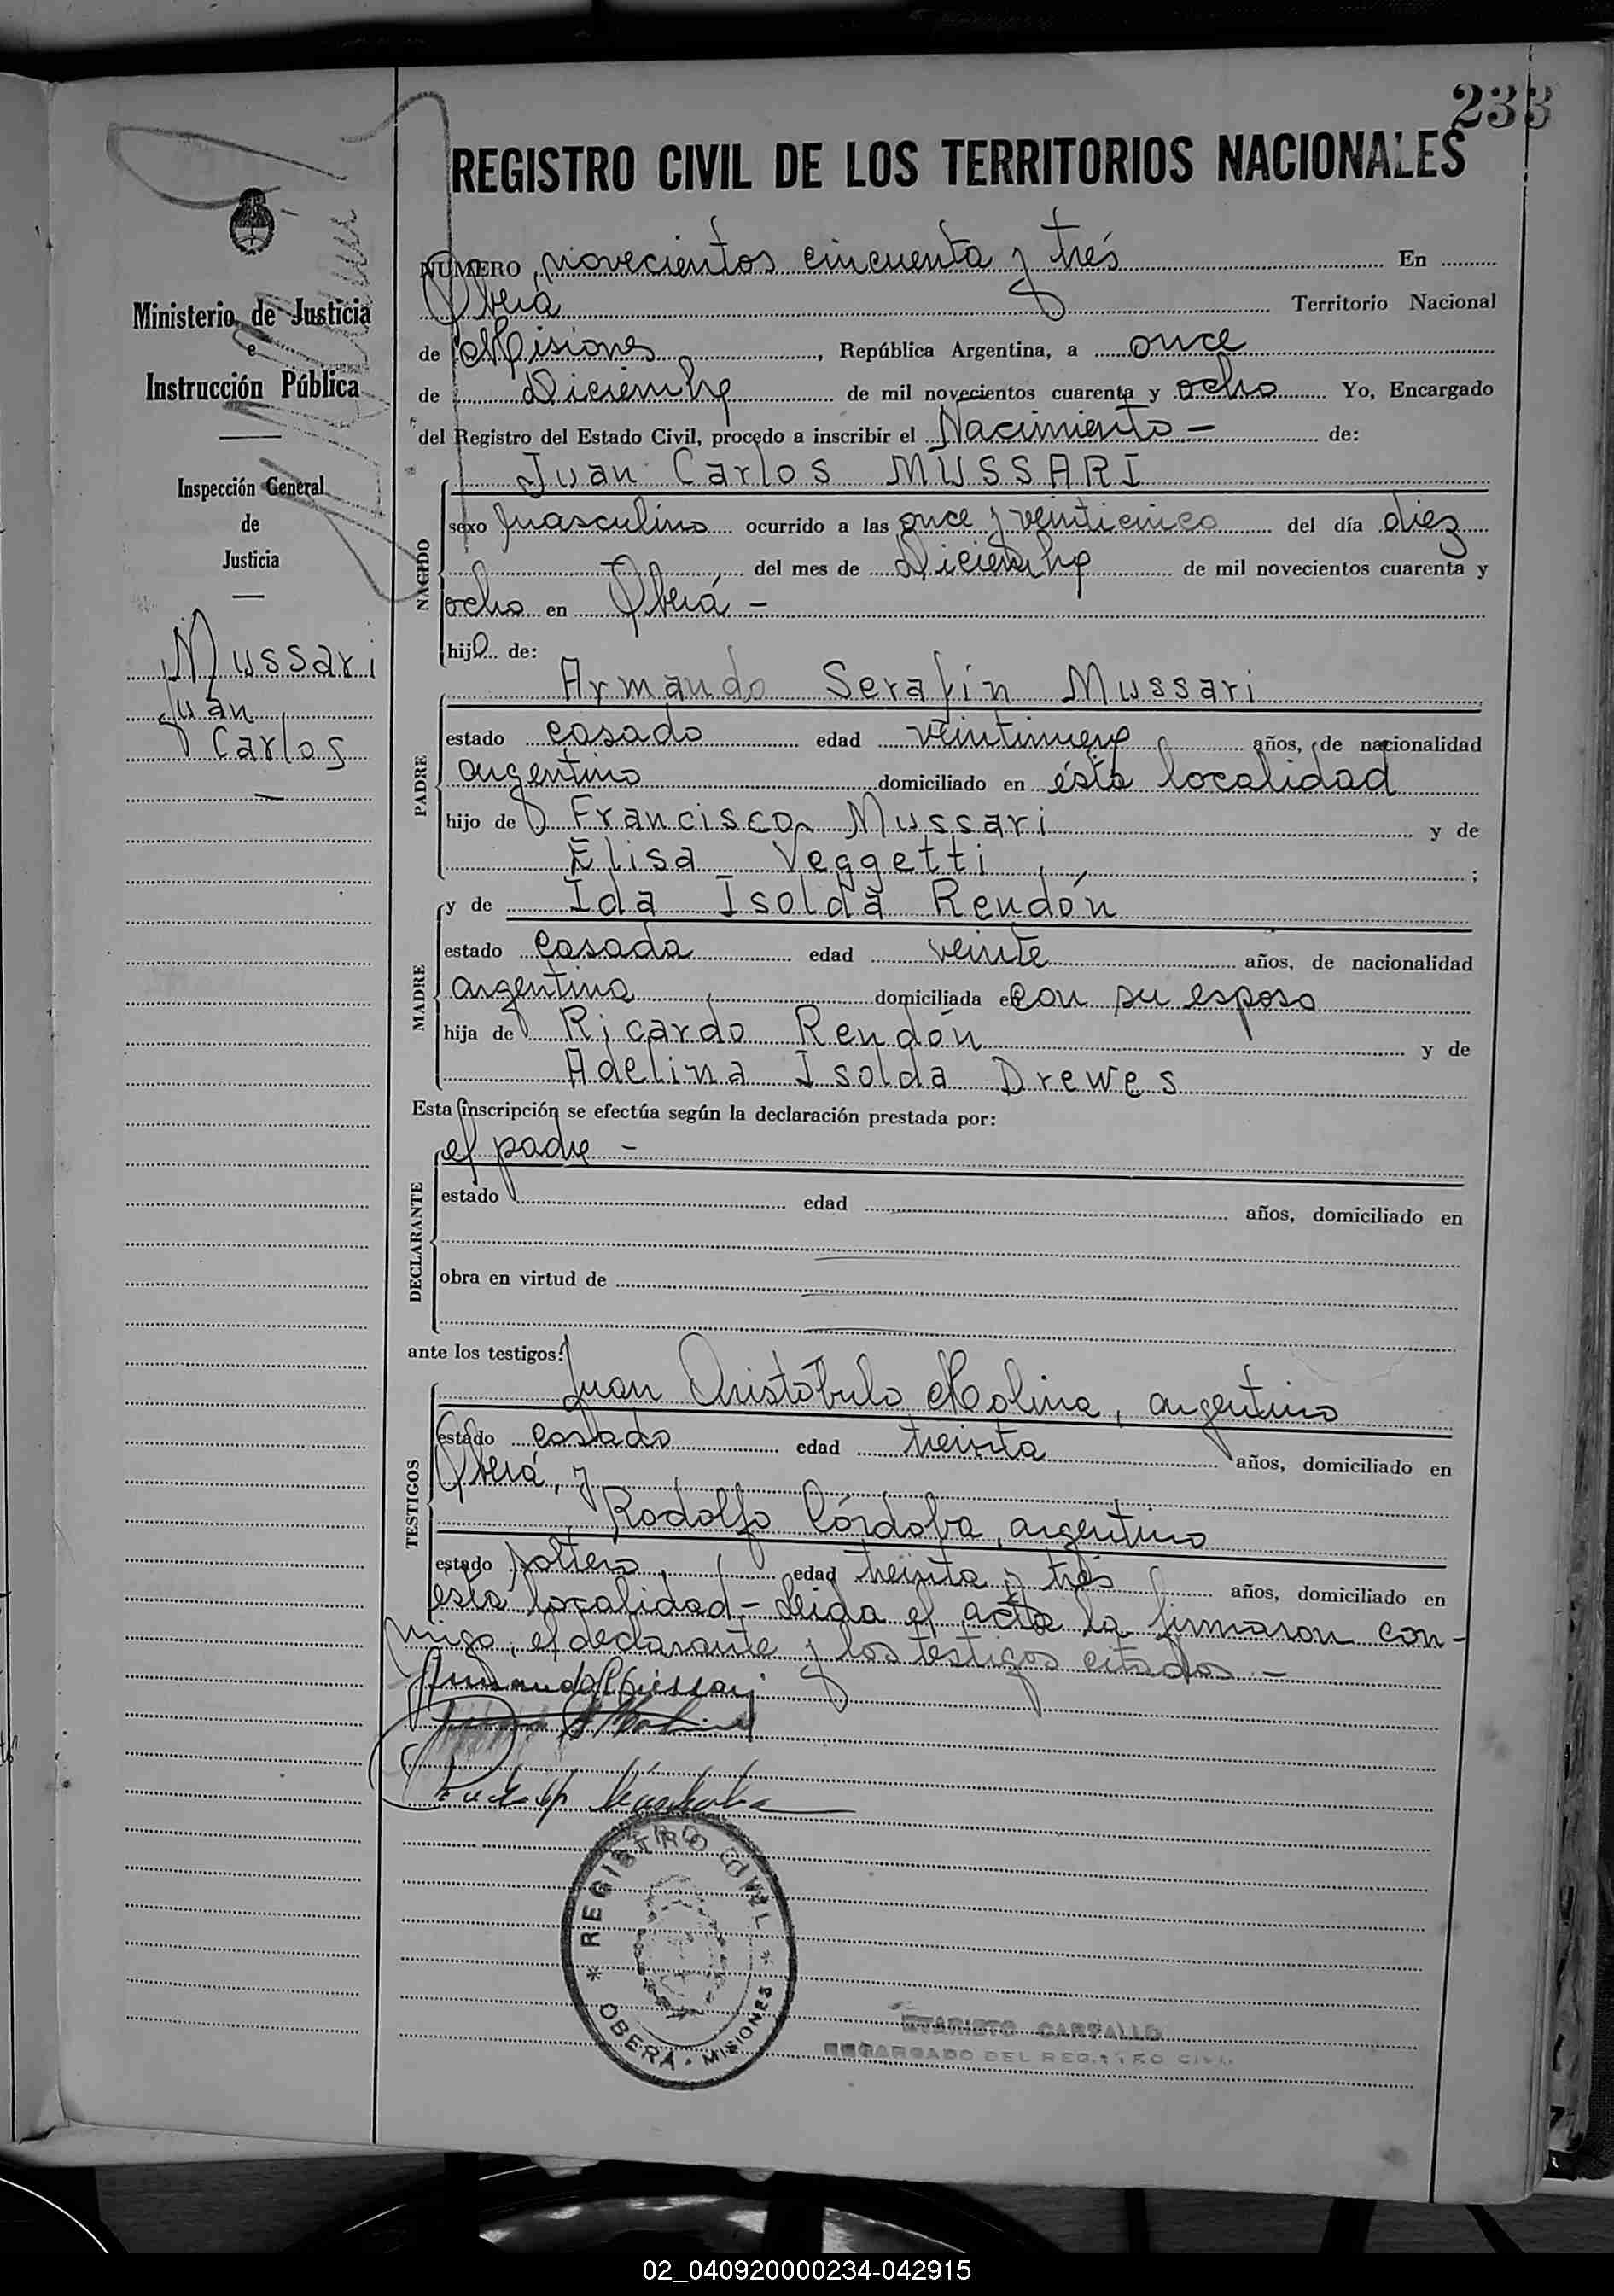 233
REGISTRO CIVIL DE LOS TERRITORIOS NACIONALES
Ministerio de Justicia
e
Instrucción Pública
Inspección General
de
Justicia
Mussari
Juan
Carlos
NUMERO novecientos cincuenta y trés En
Oberá Territorio Nacional
de Misiones, República Argentina, a once
de Diciembre de mil novecientos cuarenta y ocho Yo, Encargado
del Registro del Estado Civil, procedo a inscribir el Nacimiento - de:
NACIDO
Juan Carlos MUSSARI
sexo masculino ocurrido a las once y veinticinco del día diez
del mes de Diciembre de mil novecientos cuarenta y
ocho en Oberá -
hijo de:
PADRE
Armando Serafín Mussari
estado casado edad veintinueve años, de nacionalidad
argentino domiciliado en ésta localidad
hijo de Francisco Mussari y de
Elisa Veggetti ;
MADRE
y de Ida Isolda Rendón
estado casada edad veinte años, de nacionalidad
argentina domiciliada en con su esposo
hija de Ricardo Rendón y de
Adelina Isolda Drewes
Esta inscripción se efectúa según la declaración prestada por:
DECLARANTE
el padre -
estado edad años, domiciliado en
obra en virtud de
ante los testigos:
TESTIGOS
Juan Aristóbulo Molina, argentino
estado casado edad treinta años, domiciliado en
Oberá, y
Rodolfo Córdoba, argentino
estado soltero edad treinta y trés años, domiciliado en
esta localidad - Leida el acta la firmaron con-
migo, el declarante y los testigos citados. -
Armando Mussari
Rodolfo Córdoba
* REGISTRO CIVIL *
OBERÁ - MISIONES
ENCARGADO DEL REGISTRO CIVIL
02_040920000234-042915